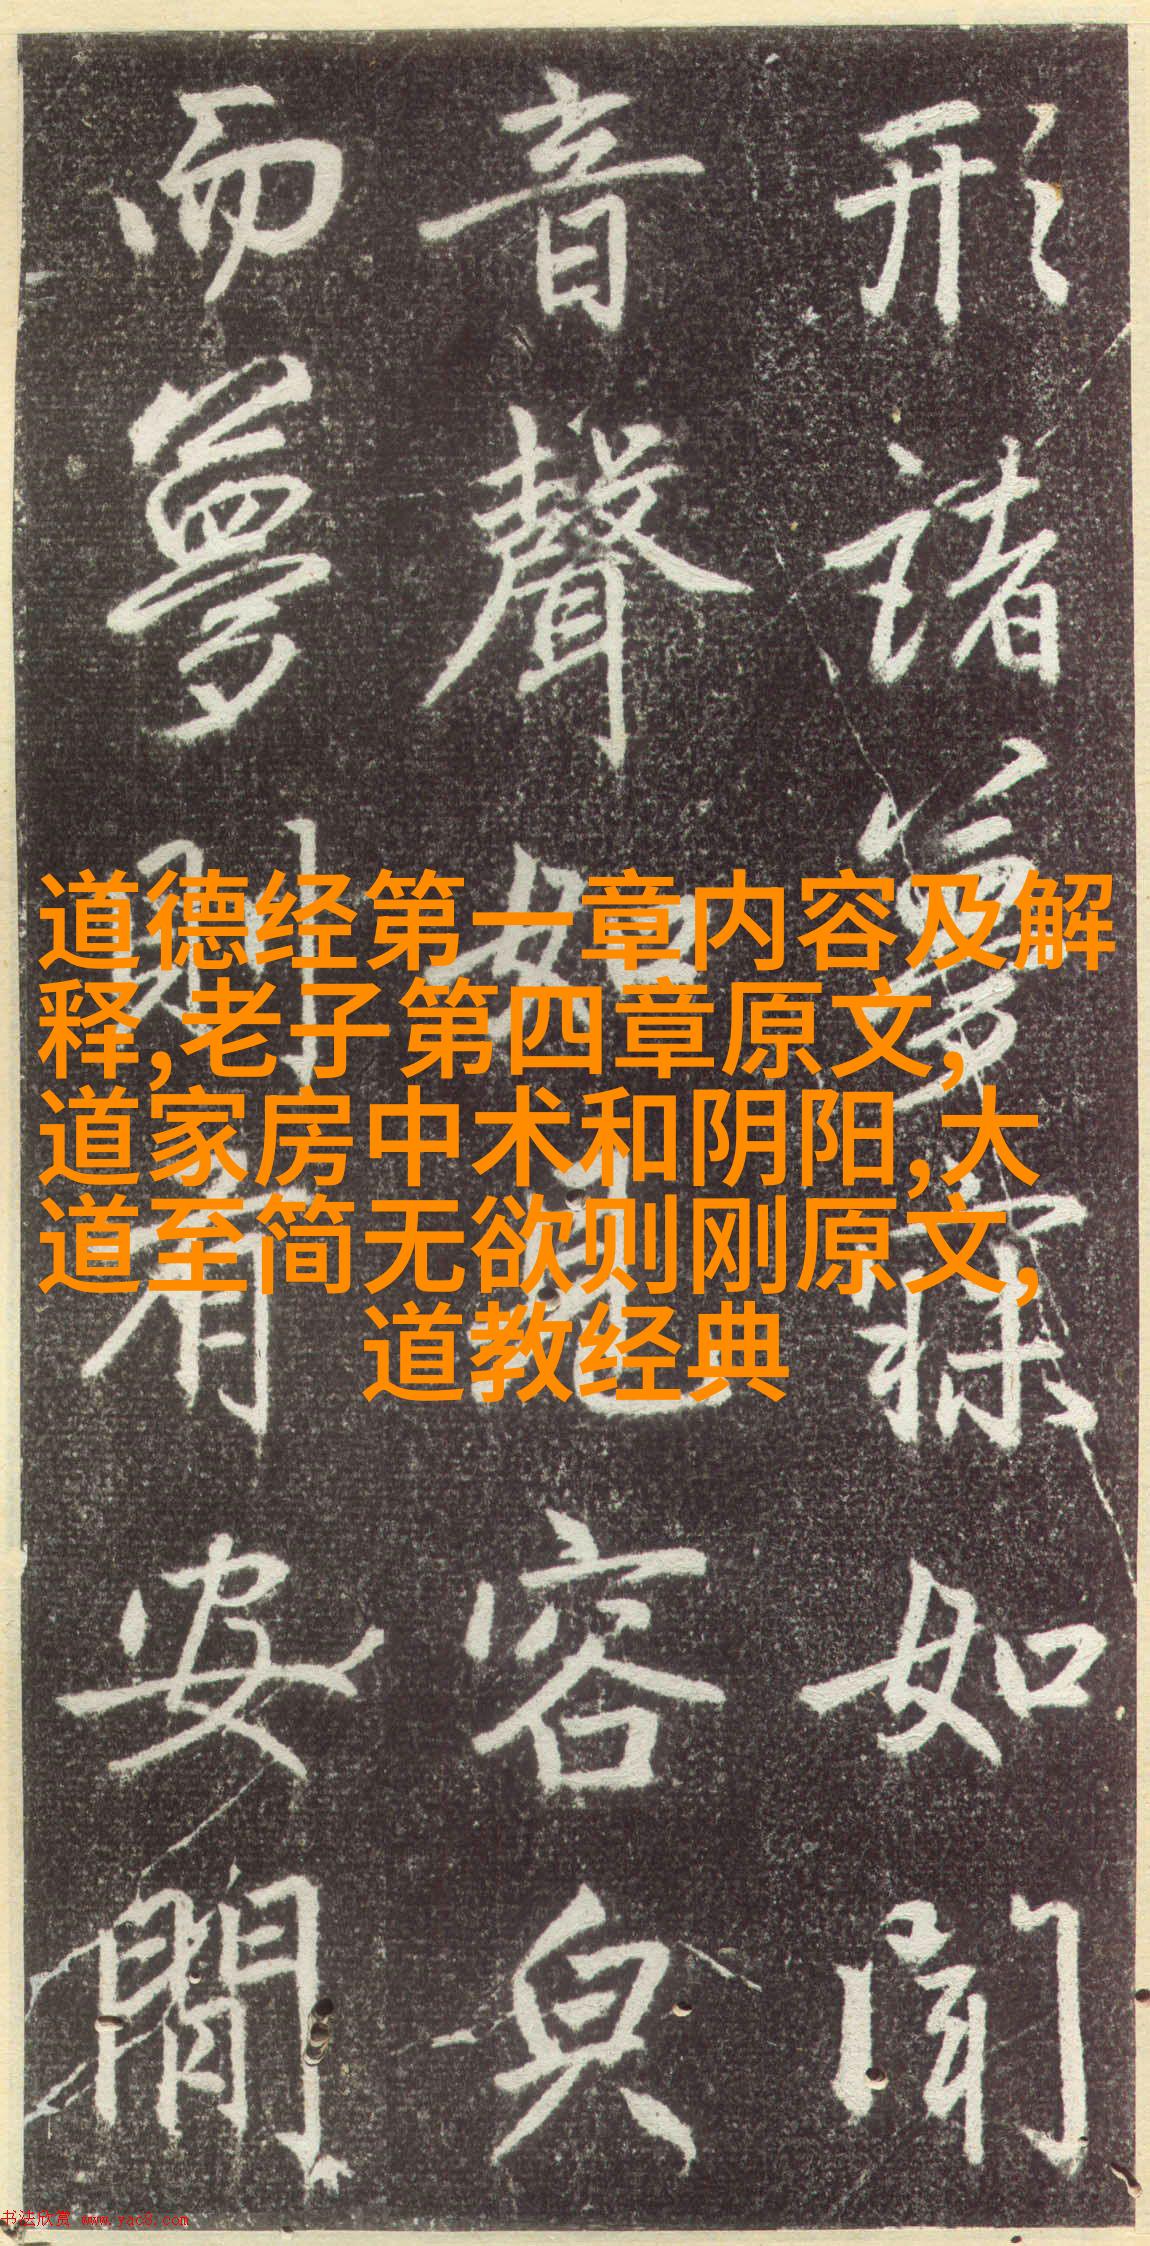 形諸夢寐如聞
音聲如見容皃
而夢則有安閒
道德经第一章内容及解
释,老子第四章原文,
道家房中术和阴阳,大
道至简无欲则刚原文,
道教经典
书法欣赏 www.yac8.com